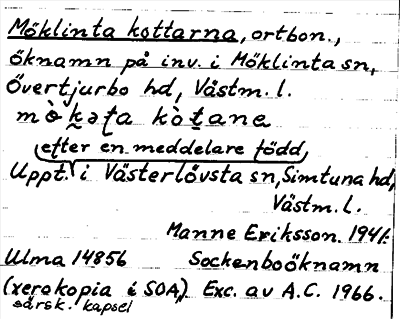 Möklinta kottarna, ortbon.,
öknamn på inv. i Möklinta sn,
Övertjurbo hd, Västm. l.
mò̤ḵəta kòt̲ana
efter en meddelare född
Uppt. i Västerlövsta sn, Simtuna hd,
Västm. l.
Manne Eriksson. 1941.
Ulma 14856 Sockenboöknamn
(xerokopia i SOA), Exc. av A.C. 1966.
särsk. kapsel